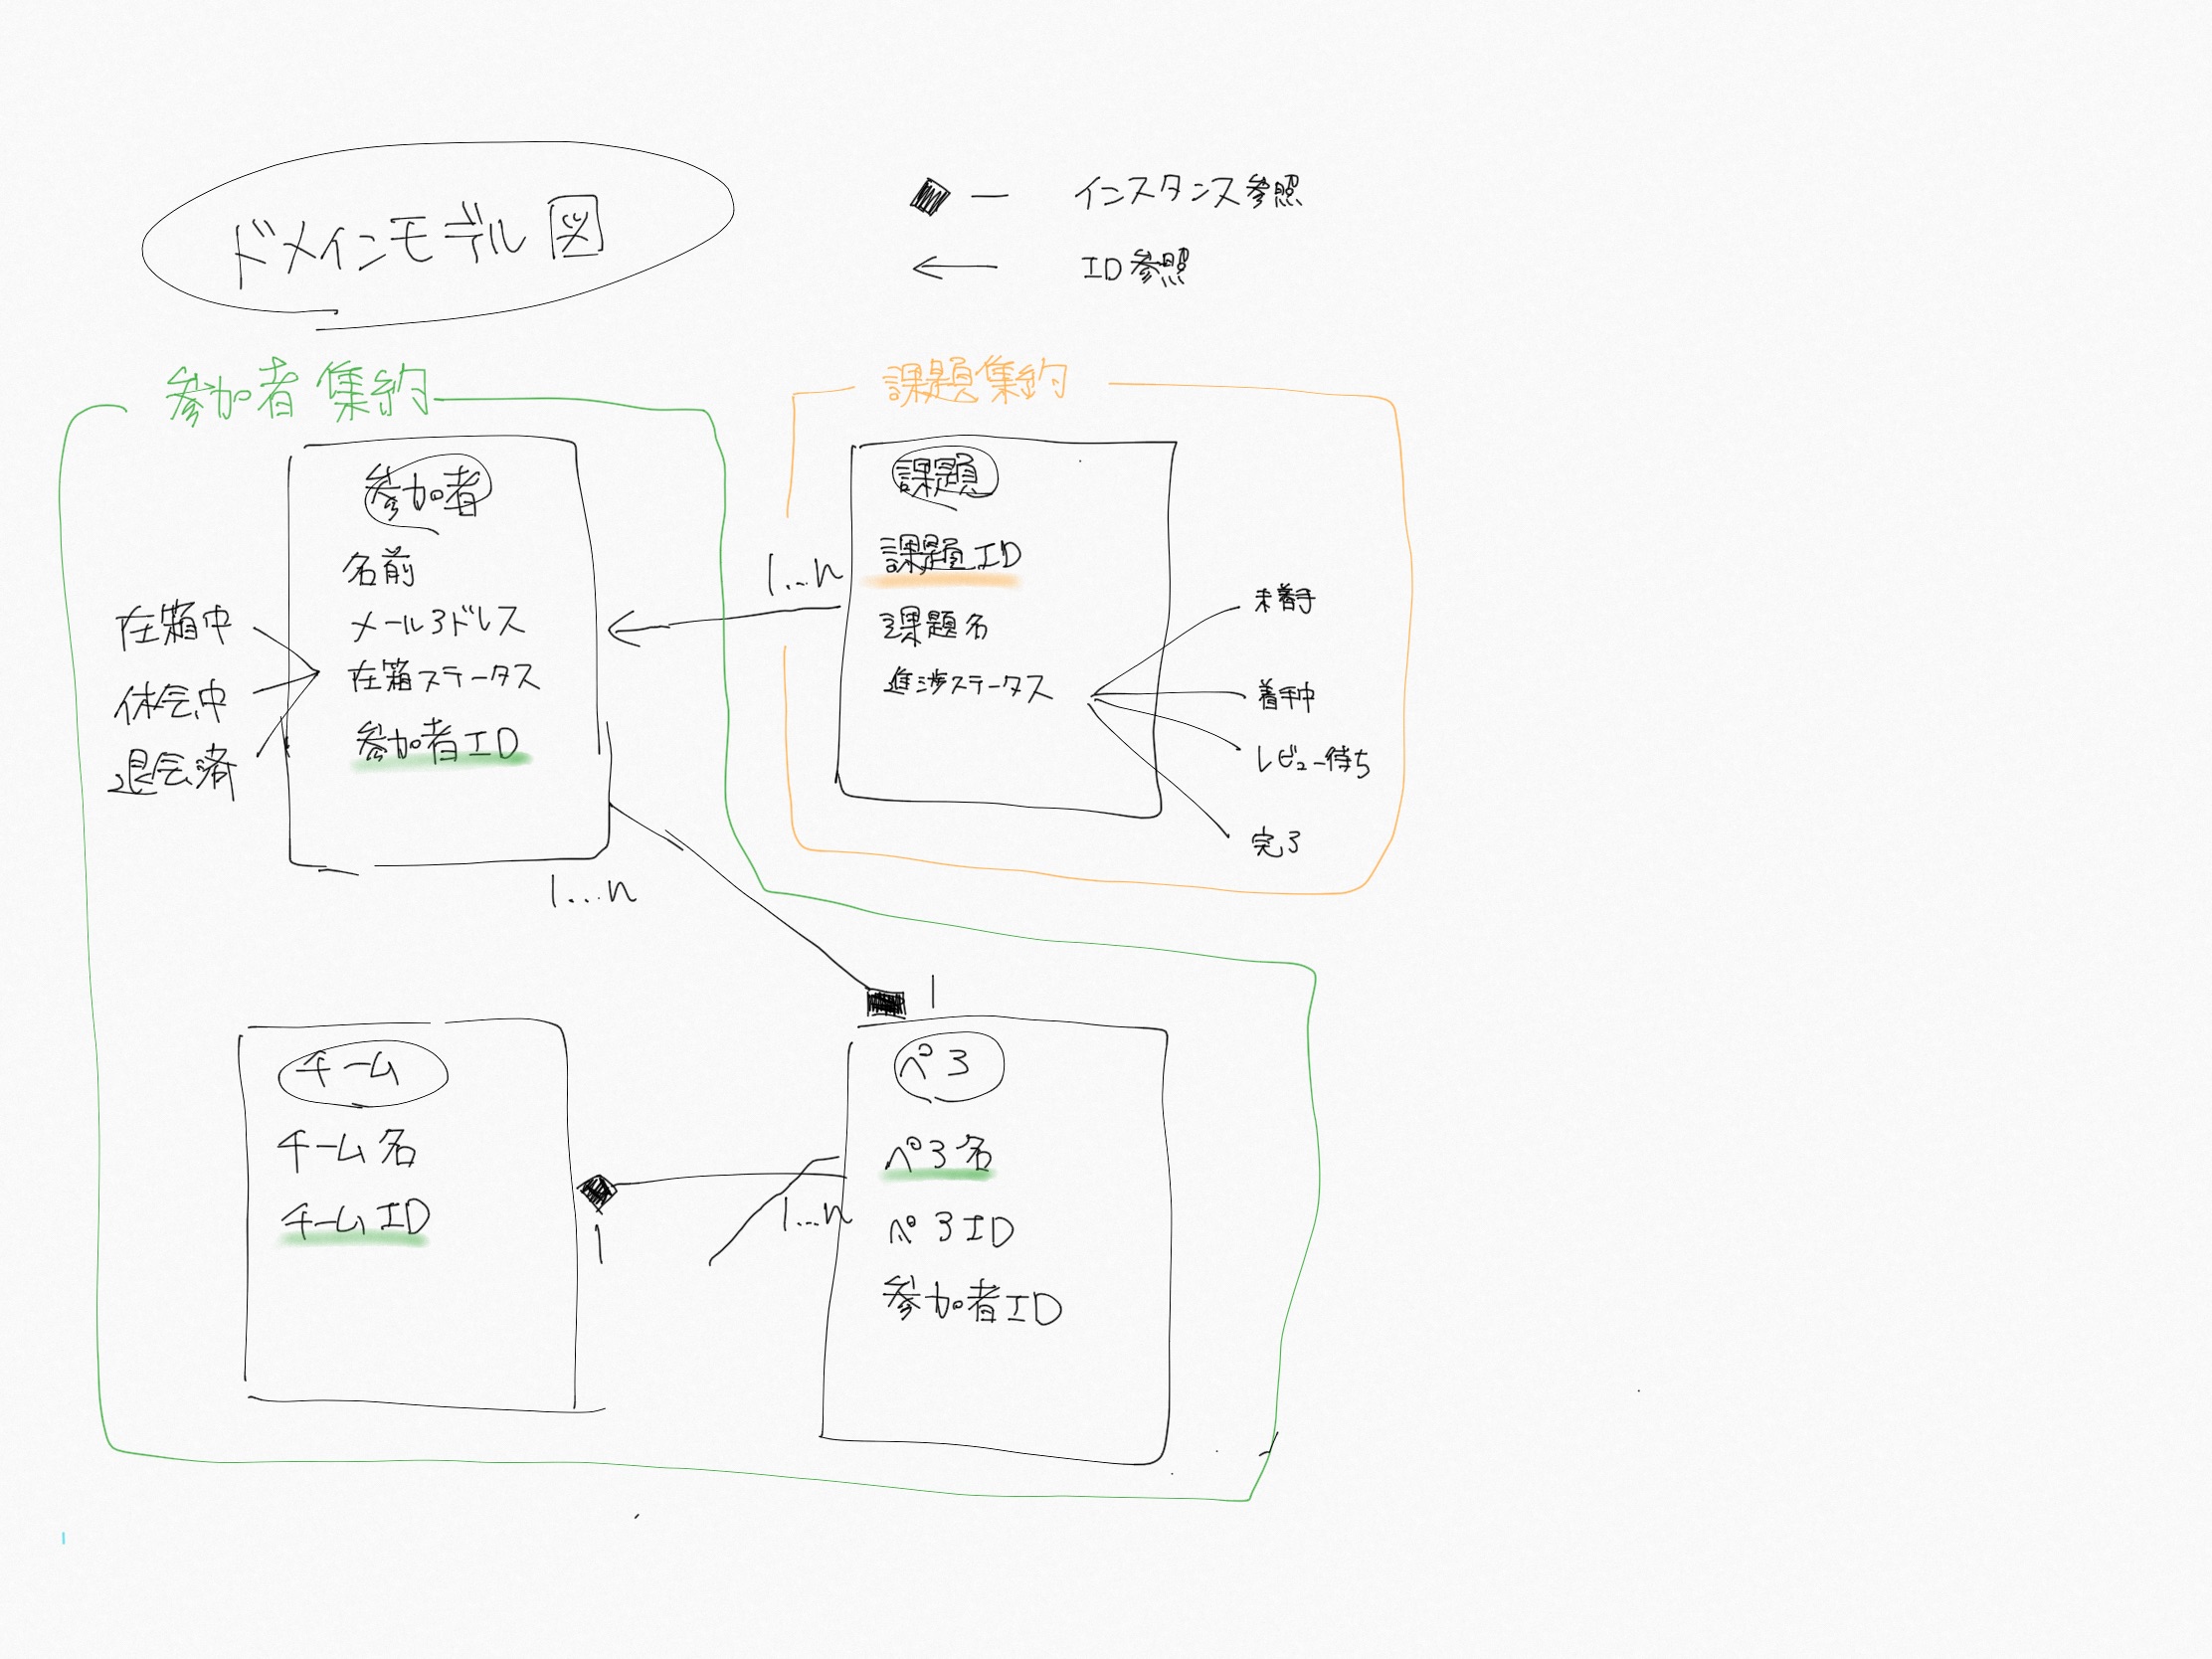 ドメインモデル図
インスタンス参照
ID参照
参加者集約
参加者
名前
メールアドレス
在籍ステータス
参加者ID
在籍中
休会中
退会済
1...n
課題集約
課題
課題ID
課題名
進捗ステータス
未着手
着手中
レビュー待ち
完了
1...n
1
チーム
チーム名
チームID
1
1...n
ペア
ペア名
ペアID
参加者ID